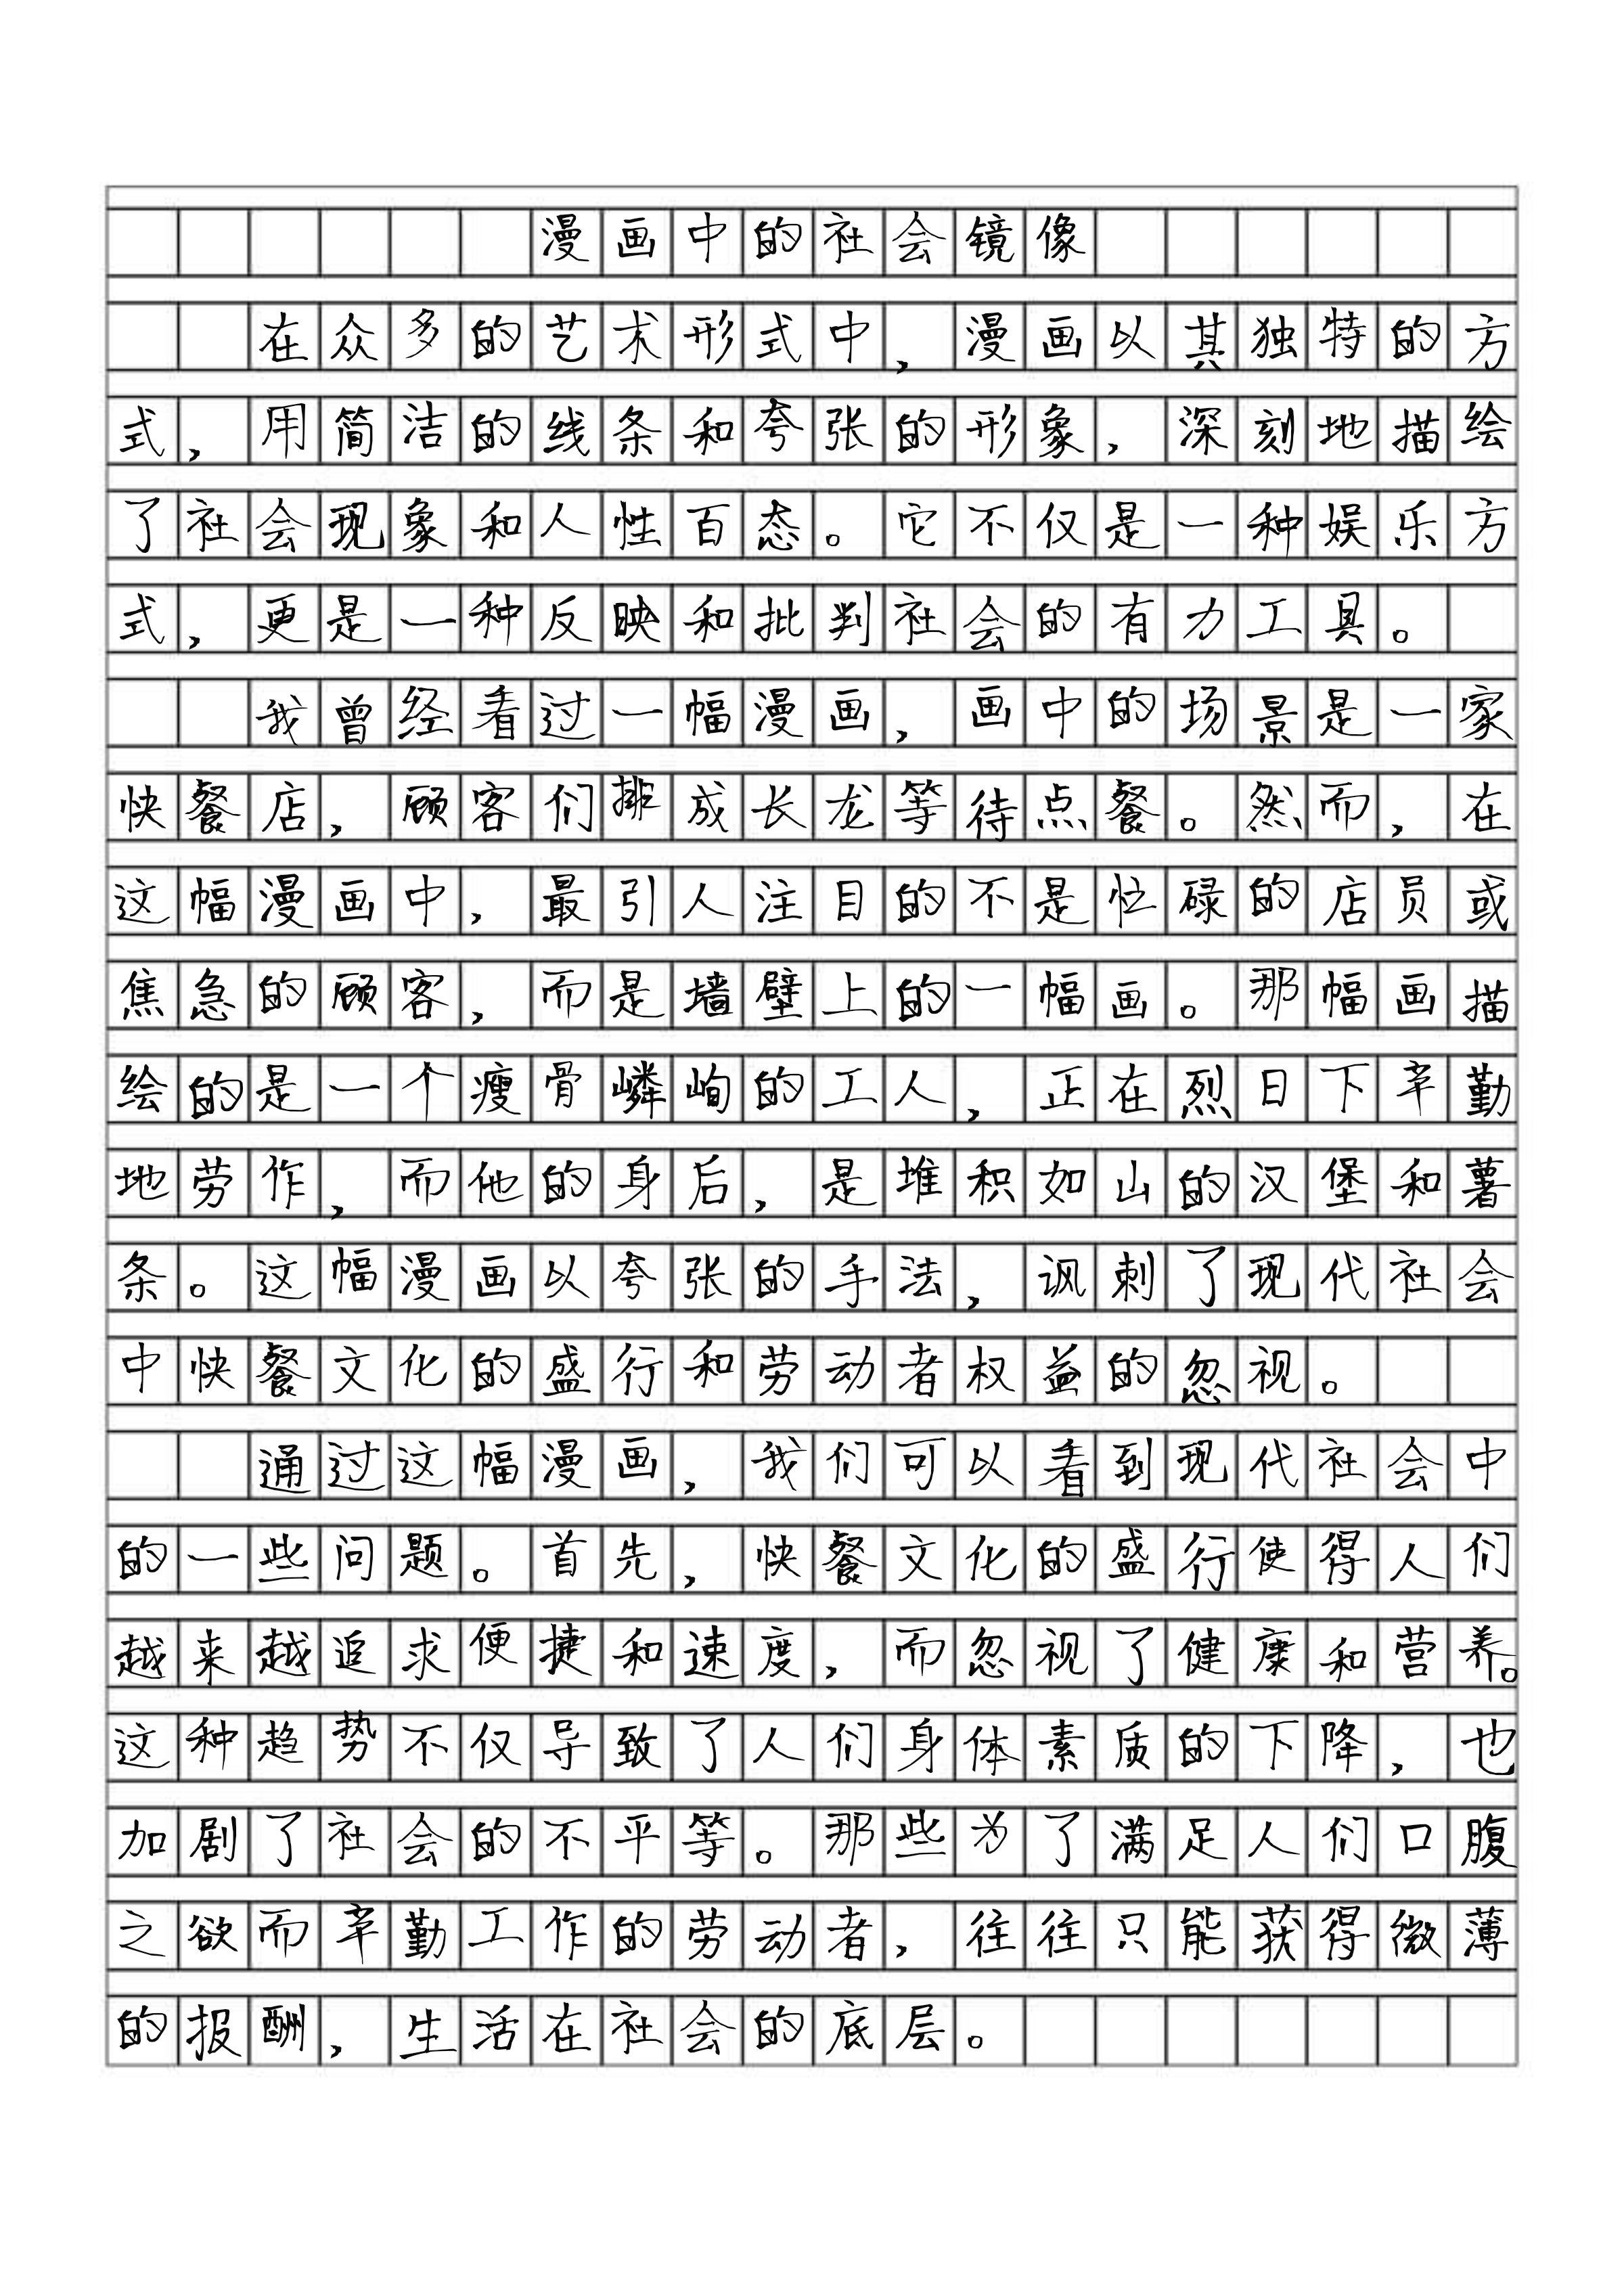 漫画中的社会镜像
在众多的艺术形式中，漫画以其独特的方
式，用简洁的线条和夸张的形象，深刻地描绘
了社会现象和人性百态。它不仅是一种娱乐方
式，更是一种反映和批判社会的有力工具。
我曾经看过一幅漫画，画中的场景是一家
快餐店，顾客们排成长龙等待点餐。然而，在
这幅漫画中，最引人注目的不是忙碌的店员或
焦急的顾客，而是墙壁上的一幅画。那幅画描
绘的是一个瘦骨嶙峋的工人，正在烈日下辛勤
地劳作，而他的身后，是堆积如山的汉堡和薯
条。这幅漫画以夸张的手法，讽刺了现代社会
中快餐文化的盛行和劳动者权益的忽视。
通过这幅漫画，我们可以看到现代社会中
的一些问题。首先，快餐文化的盛行使得人们
越来越追求便捷和速度，而忽视了健康和营养。
这种趋势不仅导致了人们身体素质的下降，也
加剧了社会的不平等。那些为了满足人们口腹
之欲而辛勤工作的劳动者，往往只能获得微薄
的报酬，生活在社会的底层。